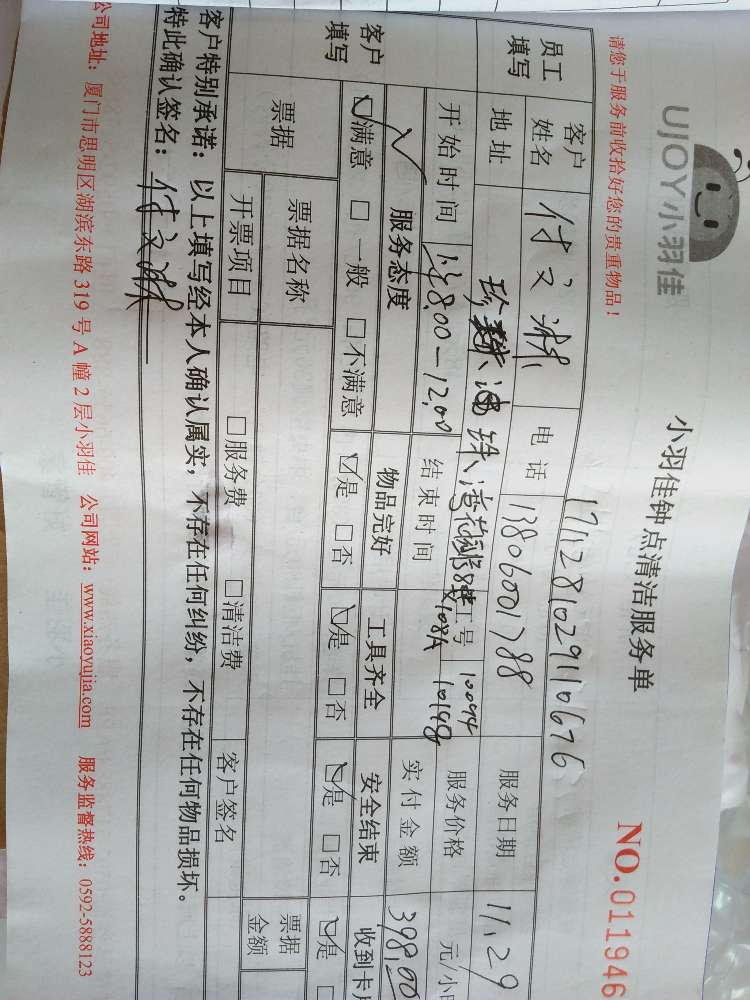 请您于服务前收拾好您的贵重物品！
UJOY小羽佳
小羽佳钟点清洁服务单
NO.011946
1711281029110676
员工填写
客户姓名 付文 电话 13806001788 服务日期 11.29
地址 珍珠湾花园 108A 工号 10094 10148 服务价格 元/小
开始时间 8.00-12.00 结束时间 实付金额 398.00
客户填写
服务态度 物品完好 工具齐全 安全结束 收到卡
☑满意 □一般 □不满意 ☑是 □否 ☑是 □否 ☑是 □否 ☑是
票据 票据名称 客户签名 票据金额
开票项目 □服务费 □清洁费
客户特别承诺：以上填写经本人确认属实，不存在任何纠纷，不存在任何物品损坏。
特此确认签名：付文
公司地址：厦门市思明区湖滨东路319号A幢2层小羽佳 公司网站：www.xiaoyujia.com 服务监督热线：0592-5888123